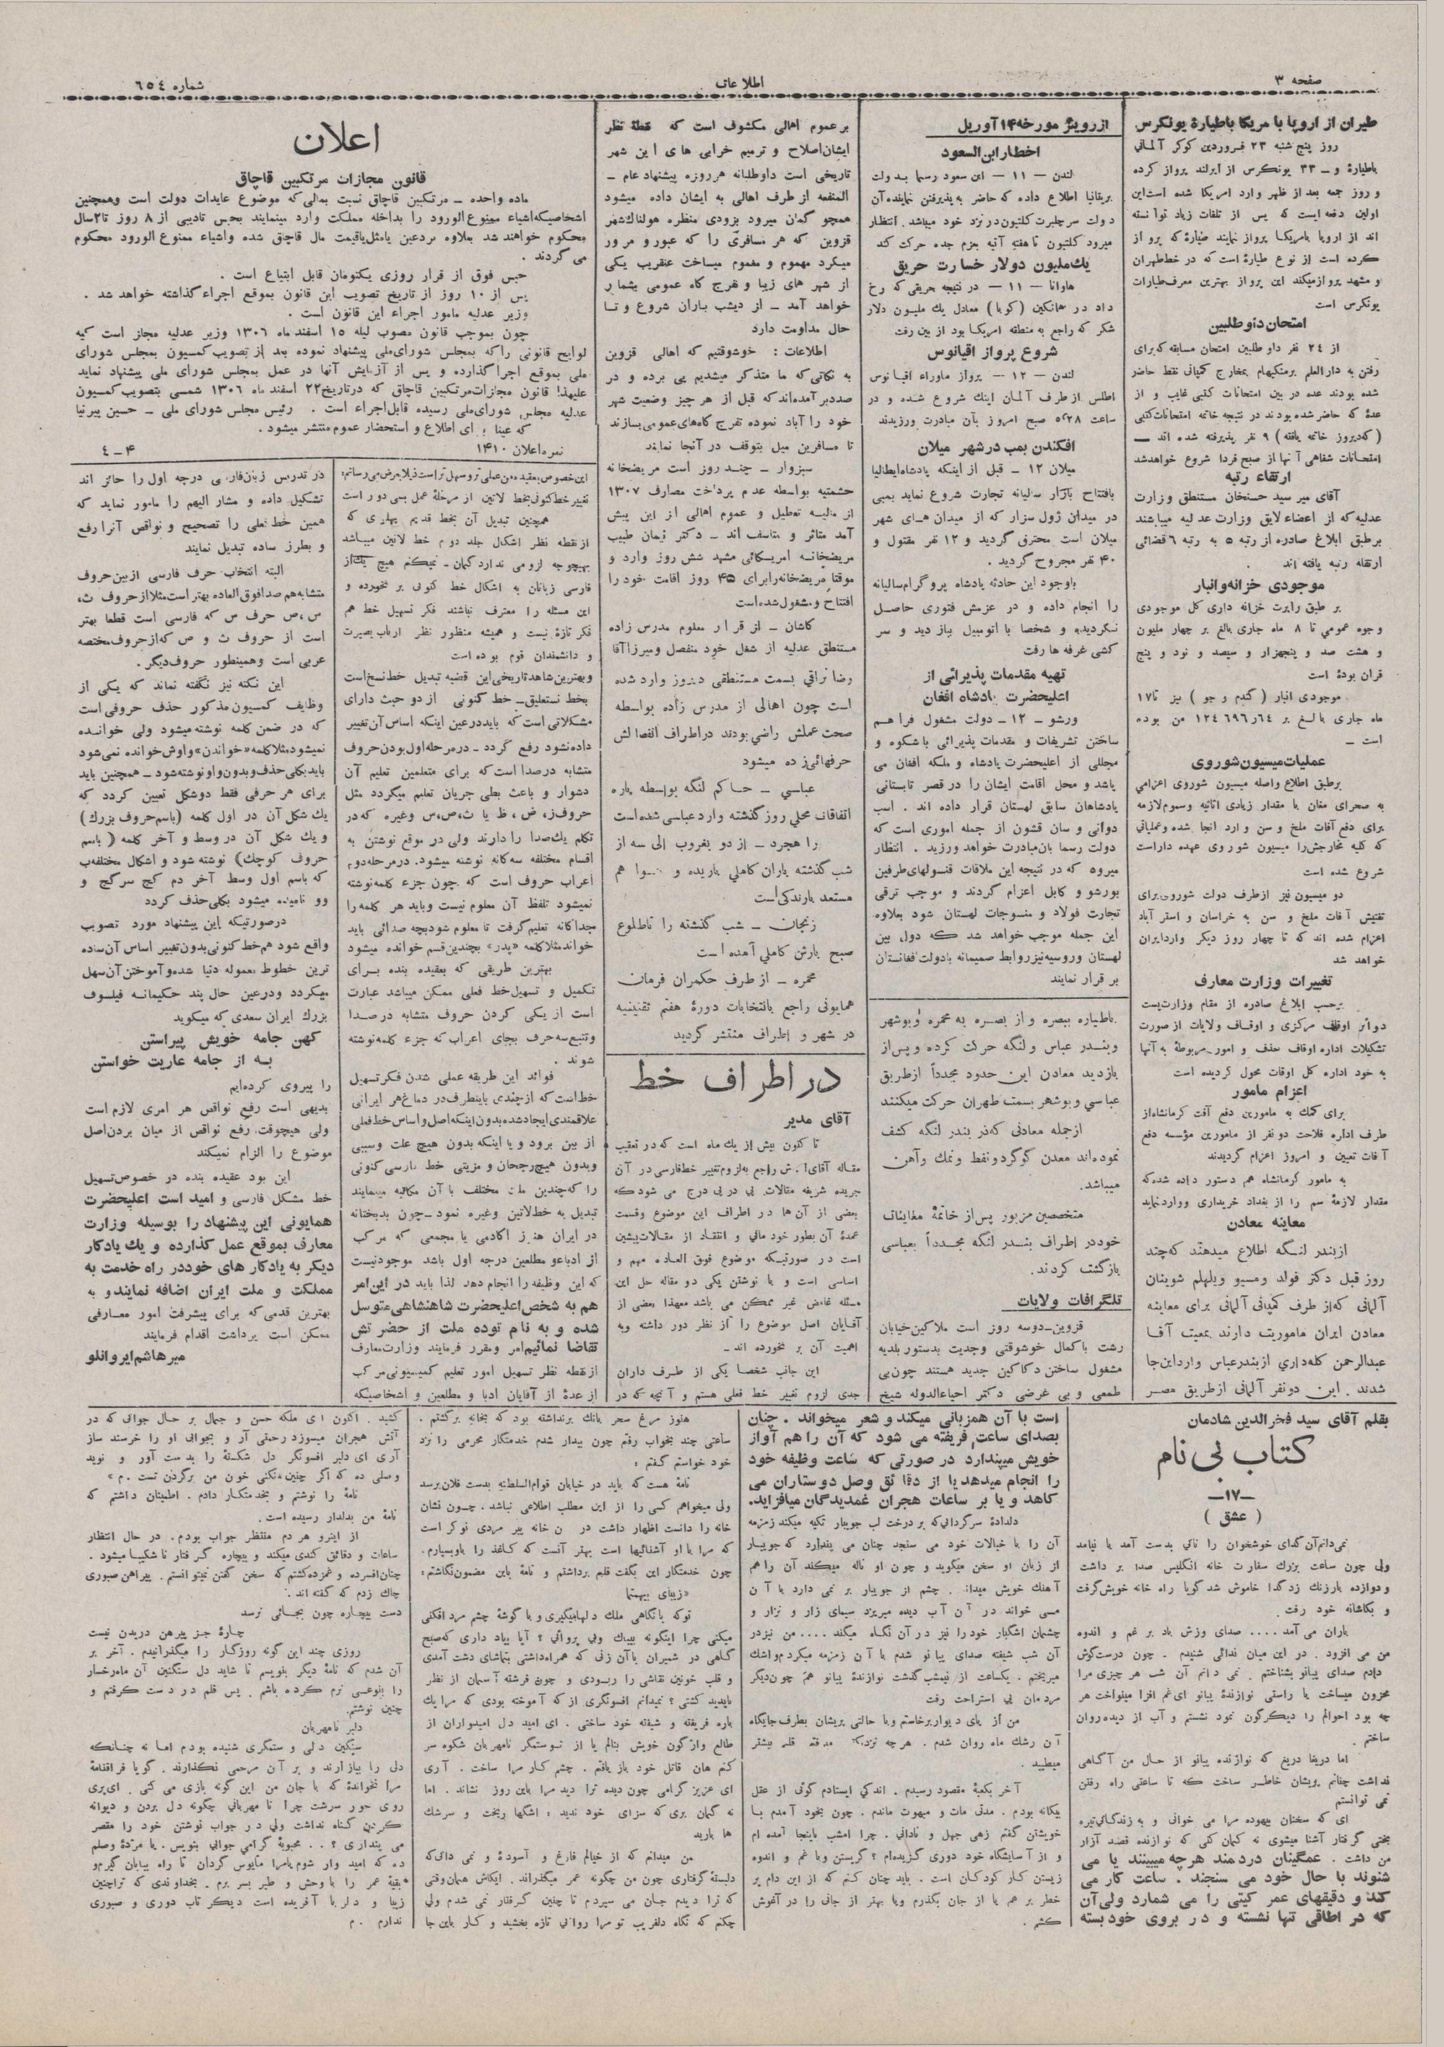 صفحه ۳
اطلاعات
شماره ٦٥٤
طیران از اروپا با مریکا با طیارۀ یونکرس
روز پنج شنبه ۲۳ فروردین کوکر آلمانی
و روز جمعه بعد از ظهر وارد امریکا شده است این
اولین دفعه ایست که پس از تلفات زیاد توانسته
اند از اروپا بامریکا پرواز نمایند طیارۀ که پرواز
کرده است از نوع طیارۀ است که در خط طهران
و مشهد پرواز میکند این پرواز بهترین معرف طیارات
یونکرس است
امتحان داوطلبین
از ۲٤ نفر داوطلبین امتحان مسابقه که برای
رفتن به دارالعلم برمنگهام بمخارج کمپانی نقط حاضر
شده بودند عده در بین امتحانات کتبی غایب و از
عدۀ که حاضر شده بودند در نتیجه خاتمه امتحانات کتبی
(که دیروز خاتمه یافته) ۹ نفر پذیرفته شده اند ــ
امتحانات شفاهی آنها از صبح فردا شروع خواهد شد
ارتقاء رتبه
آقای میر سید حسنخان مستنطق وزارت
عدلیه که از اعضاء لایق وزارت عدلیه میباشند
برطبق ابلاغ صادره از رتبه ۵ به رتبه ٦ قضائی
ارتقاء رتبه یافته اند .
موجودی خزانه و انبار
بر طبق راپرت خزانه داری کل موجودی
وجوه عمومی تا ۸ ماه جاری بالغ بر چهار ملیون
و هشت صد و پنجهزار و سیصد و نود و پنج
قران بودۀ است
موجودی انبار (گندم و جو) نیز تا ۱۷
ماه جاری بالغ بر
من بوده
است ــ
عملیات میسیون شوروی
برطبق اطلاع واصله میسیون شوروی اعزامی
به صحرای مغان با مقدار زیادی اثاثیه وسموم لازمه
برای دفع آفات ملخ و سن وارد آنجا شده و عملیاتی
که کلیه مخارجش را میسیون شوروی عهده دار است
شروع شده است
دو میسیون نیز از طرف دولت شوروی برای
تفتیش آفات ملخ و سن به خراسان و استر آباد
اعزام شده اند که تا چهار روز دیگر وارد ایران
خواهد شد
تغییرات وزارت معارف
برحسب ابلاغ صادره از مقام وزارت پست
دوائر اوقاف مرکزی و اوقاف ولایات از صورت
تشکیلات اداره اوقاف حذف و امور مربوطۀ به آنها
به خود اداره کل اوقاف محول گردیده است
اعزام مامور
برای کمک به مامورین دفع آفت کرمانشاه از
طرف اداره فلاحت دو نفر از مامورین مؤسسه دفع
آفات تعیین و امروز اعزام گردیدند
به مامور کرمانشاه هم دستور داده شده که
مقدار لازمۀ سم را از بغداد خریداری و وارد نماید
معاینه معادن
از بندر لنگه اطلاع میدهند که چند
روز قبل دکتر فولد و مسیو ویلهلم شوینان
آلمانی که از طرف کمپانی آلمانی برای معاینه
معادن ایران ماموریت دارند بمعیت آقا
عبدالرحمن کله داری از بندر عباس وارد این جا
شدند . این دو نفر آلمانی از طریق مصر
از رویتر مورخه ۱۴ آوریل
اخطار ابن السعود
لندن ــ ۱۱ ــ ابن سعود رسما بدولت
بریتانیا اطلاع داده که حاضر به پذیرفتن نماینده آن
دولت سر جلبرت کلتیون در نزد خود میباشد . انتظار
میرود کلتیون تا هفته آتیه بعزم جده حرکت کند
یک ملیون دولار خسارت حریق
هاوانا ــ ۱۱ ــ در نتیجه حریقی که رخ
داد در (کوبا) معادل یک ملیون دلار
شکر که راجع به منطقه امریکا بود از بین رفت
شروع پرواز اقیانوس
لندن ــ ۱۲ ــ پرواز ماوراء اقیانوس
اطلس از طرف آلمان اینک شروع شده و در
ساعت ۵٫۲۸ صبح امروز بآن مبادرت ورزیدند
افکندن بمب در شهر میلان
میلان ۱۲ ــ قبل از اینکه پادشاه ایطالیا
بافتتاح بازار سالیانه تجارت شروع نماید بمبی
در میدان ژول سزار که از میدان های شهر
میلان است محترق گردید و ۱۲ نفر مقتول و
۴۰ نفر مجروح گردید .
باوجود این حادثه پادشاه پروگرام سالیانه
را انجام داده و در عزمش فتوری حاصل
نگردیده و شخصا با اتومبیل بیاز دید و سر
کشی غرفه ها رفت
تهیه مقدمات پذیرائی از
اعلیحضرت پادشاه افغان
ورشو ــ ۱۲ ــ دولت مشغول فراهم
ساختن تشریفات و مقدمات پذیرائی باشکوه و
مجللی از اعلیحضرت پادشاه و ملکه افغان می
باشد و محل اقامت ایشان را در قصر تابستانی
پادشاهان سابق لهستان قرار داده اند . اسب
دوانی و سان قشون از جمله اموری است که
دولت رسما بان مبادرت خواهد ورزید . انتظار
میروه که در نتیجه این ملاقات قنسولهای طرفین
بورشو و کابل اعزام گردند و موجب ترقی
تجارت فولاد و منسوجات لهستان شود بعلاوه
این جمله موجب خواهد شد که دول بین
لهستان و روسیه نیز روابط صمیمانه با دولت افغانستان
بر قرار نمایند
باطیاره ببصره و از بصره به محمره و بوشهر
و بندر عباس و لنگه حرکت کرده و پس از
بازدید معادن این حدود مجدداً از طریق
عباسی و بوشهر بسمت طهران حرکت میکنند
از جمله معادنی که در بندر لنگه کشف
نموده اند معدن گوگرد و نفط و نمک و آهن
میباشد .
متخصصین مزبور پس از خاتمۀ معاینات
خود در اطراف بندر لنگه مجدداً بعباسی
بازگشت کردند .
تلگرافات ولایات
قزوین ــ دو سه روز است ملاکین خیابان
رشت با کمال خوشوقتی و جدیت بدستور بلدیه
مشغول ساختن دکاکین جدید هستند چون بی
طمعی و بی غرضی دکتر احیاء الدوله شیخ
بر عموم اهالی مکشوف است که نقطۀ نظر
ایشان اصلاح و ترمیم خرابی های این شهر
تاریخی است داوطلبانه هر روزه پیشنهاد عام ــ
المنفعه از طرف اهالی به ایشان داده میشود
همچو گمان میرود بزودی منظره هولناک شهر
قزوین که هر مسافری را که عبور و مرور
میکرد مهموم و مغموم میساخت عنقریب یکی
از شهر های زیبا و تفرج گاه عمومی بشمار
خواهد آمد ــ از دیشب باران شروع و تا
حال مداومت دارد
اطلاعات : خوشوقتیم که اهالی قزوین
به نکاتی که ما متذکر میشدیم پی برده و در
صدد برآمده اند که قبل از هر چیز وضعیت شهر
خود را آباد نموده تفرج گاه های عمومی بسازند
تا مسافرین میل بتوقف در آنجا نمایند
سبزوار ــ چند روز است مریضخانه
حشمتیه بواسطه عدم پرداخت مصارف ۱۳۰۷
از مالیه تعطیل و عموم اهالی از این پیش
آمد متاثر و متاسف اند ــ دکتر طبیب
مریضخانه امریکائی مشهد شش روز وارد و
موقتا مریضخانه را برای ۴۵ روز اقامت خود را
افتتاح و مشغول شده است
کاشان ــ از قرار معلوم مدرس زاده
مستنطق عدلیه از شغل خود منفصل و میرزا آقا
رضا نراقی بسمت مستنطقی دیروز وارد شده
است چون اهالی از مدرس زاده بواسطه
صحت عملش راضی بودند در اطراف انفصالش
حرفهائی زده میشود
عباسی ــ حاکم لنگه بواسطه پاره
اتفاقات محلی روز گذشته وارد عباسی شده است
را هجرد ــ از دو بغروب الی سه از
شب گذشته باران کاملی باریده و هوا هم
مستعد بارندگی است
زنجان ــ شب گذشته را تا طلوع
صبح بارش کاملی آمده است
محمره ــ از طرف حکمران فرمان
همایونی راجع بانتخابات دورۀ هفتم تقنینیه
در شهر و اطراف منتشر گردید
در اطراف خط
آقای مدیر
تا کنون بیش از یک ماه است که در تعقیب
مقاله آقای آ . ش راجع به لزوم تغییر خط فارسی در آن
جریده شریفه مقالات پی در پی درج می شود که
بعضی از آن ها در اطراف این موضوع و قسمت
عمدۀ آن بطور خود مالی و انتقاد از مقالات پیشین
است در صورتیکه موضوع فوق العاده مهم و
اساسی است و با نوشتن یکی دو مقاله حل این
مسئله غامض غیر ممکن می باشد معهذا بعضی از
آقایان اصل موضوع را از نظر دور داشته و به
اهمیت آن بر نخورده اند ــ
این جانب شخصا یکی از طرف داران
جدی لزوم تغییر خط فعلی هستم و آنچه که در
اعلان
قانون مجازات مرتکبین قاچاق
ماده واحده ــ مرتکبین قاچاق نسبت بمالی که موضوع عایدات دولت است و همچنین
اشخاصیکه اشیاء ممنوع الورود را بداخله مملکت وارد مینمایند بحبس تادیبی از ۸ روز تا ۲ سال
محکوم خواهند شد بعلاوه مردعین یا مثل یا قیمت مال قاچاق شده و اشیاء ممنوع الورود محکوم
می گردند .
حبس فوق از قرار روزی یکتومان قابل ابتیاع است .
پس از ۱۰ روز از تاریخ تصویب این قانون بموقع اجراء گذاشته خواهد شد .
وزیر عدلیه مامور اجراء این قانون است .
چون بموجب قانون مصوب لیله ۱۵ اسفند ماه ۱۳۰٦ وزیر عدلیه مجاز است کلیه
لوایح قانونی را که به مجلس شورای ملی پیشنهاد نموده بعد از تصویب کمسیون بمجلس شورای
ملی بموقع اجرا گذارده و پس از آزمایش آنها در عمل بمجلس شورای ملی پیشنهاد نماید
علیهذا قانون مجازات مرتکبین قاچاق که در تاریخ ۲۲ اسفند ماه ۱۳۰٦ شمسی بتصویب کمسیون
عدلیه مجلس شورای ملی رسیده قابل اجراء است . رئیس مجلس شورای ملی ــ حسین پیرنیا
که عینا برای اطلاع و استحضار عموم منتشر میشود .
نمره اعلان ۱۴۱۰
۴ــ۴
این خصوص بعقیده من عملی تر و سهل تر است ذیلا بعرض می رسانم :
تغییر خط کنونی بخط لاتین از مرحلۀ عمل بسی دور است
همچنین تبدیل آن بخط قدیم پهلوی که
از نقطه نظر اشکال جلد دوم خط لاتین میباشد
بهیچوجه لزومی ندارد گمان ــ نمیکنم هیچ یک از
فارسی زبانان به اشکال خط کنونی بر نخورده و
این مسئله را معترف نباشند فکر تسهیل خط هم
فکر تازۀ نیست و همیشه منظور نظر ارباب بصیرت
و دانشمندان قوم بوده است
و بهترین شاهد تاریخی این قضیه تبدیل خط نسخ است
بخط نستعلیق ــ خط کنونی از دو حیث دارای
مشکلاتی است که باید در عین اینکه اساس آن تغییر
داده نشود رفع گردد ــ در مرحله اول بودن حروف
متشابه در صدا است که برای متعلمین تعلیم آن
دشوار و باعث بطی جریان تعلیم میگردد مثل
حروف ز ، ض ، ظ یا ث ، س ، ص و غیره که در
تکلم یک صدا را دارند ولی در موقع نوشتن به
اقسام مختلفه سه گانه نوشته میشود . در مرحله دوم
اعراب حروف است که چون جزء کلمه نوشته
نمیشود تلفظ آن معلوم نیست و باید هر کلمه را
جداگانه تعلیم گرفت تا معلوم شود بچه صدائی باید
خواند مثلا کلمه «پدر» بچندین قسم خوانده میشود
بهترین طریقی که بعقیده بنده برای
تکمیل و تسهیل خط فعلی ممکن میباشد عبارت
است از یکی کردن حروف متشابه در صدا
و تتبع سه حرف بجای اعراب که جزء کلمه نوشته
شوند .
فوائد این طریقه عملی شدن فکر تسهیل
خط است که از چندی باینطرف در دماغ هر ایرانی
علاقمندی ایجاد شده بدون اینکه اصل و اساس خط فعلی
از بین برود و یا اینکه بدون هیچ علت و سببی
و بدون هیچ رجحان و مزیتی خط پارسی کنونی
را که چندین ملت مختلف با آن مکاتبه مینمایند
تبدیل به خط لاتین و غیره نمود ــ چون بدبختانه
در ایران هنوز اکادمی یا مجمعی که مرکب
از ادبا و مطلعین درجه اول باشد موجود نیست
که این وظیفه را انجام دهد لذا باید در این امر
هم به شخص اعلیحضرت شاهنشاهی متوسل
شده و به نام توده ملت از حضرتش
تقاضا نمائیم امر و مقرر فرمایند وزارت معارف
از نقطه نظر تسهیل امور تعلیم کمیسیونی مرکب
از عدۀ از آقایان ادبا و مطلعین و اشخاصیکه
در تدرس زبان فارسی درجه اول را حائز اند
تشکیل داده و مشار الیهم را مامور نماید که
همین خط فعلی را تصحیح و نواقص آنرا رفع
و بطرز ساده تبدیل نمایند
البته انتخاب حرف فارسی از بین حروف
متشابه هم صدا فوق العاده بهتر است مثلا از حروف ث ،
س ، ص حرف س که فارسی است قطعا بهتر
است از حروف ث و ص که از حروف مختصه
عربی است و همینطور حروف دیگر .
این نکته نیز نگفته نماند که یکی از
وظایف کمسیون مذکور حذف حروفی است
که در ضمن کلمه نوشته میشود ولی خوانده
نمیشود مثلا کلمه «خواندن» واوش خوانده نمی شود
باید بکلی حذف و بدون واو نوشته شود ــ همچنین باید
برای هر حرفی فقط دو شکل تعیین گردد که
یک شکل آن در اول کلمه (باسم حروف بزرک)
و یک شکل آن در وسط و آخر کلمه (باسم
حروف کوچک) نوشته شود و اشکال مختلفه ب
که باسم اول وسط آخر دم کج سرکج و
وو نامیده میشود بکلی حذف گردد
در صورتیکه این پیشنهاد مورد تصویب
واقع شود هم خط کنونی بدون تغییر اساس آن ساده
ترین خطوط معموله دنیا شده و آموختن آن سهل
میگردد و در عین حال پند حکیمانه فیلسوف
بزرک ایران سعدی که میگوید
کهن جامه خویش پیراستن
به از جامه عاریت خواستن
را پیروی کرده ایم
بدیهی است رفع نواقص هر امری لازم است
ولی هیچوقت رفع نواقص از میان بردن اصل
موضوع را الزام نمیکند
این بود عقیده بنده در خصوص تسهیل
خط مشکل فارسی و امید است اعلیحضرت
همایونی این پیشنهاد را بوسیله وزارت
معارف بموقع عمل گذارده و یک یادکار
دیگر به یادکار های خود در راه خدمت به
مملکت و ملت ایران اضافه نمایند و به
بهترین قدمی که برای پیشرفت امور معارفی
ممکن است برداشت اقدام فرمایند
میر هاشم ایروانلو
بقلم آقای سید فخرالدین شادمان
کتاب بی نام
ــ۱۷ــ
( عشق )
نمی دانم آن گدای خوشخوان را نانی بدست آمد یا نیامد
ولی چون ساعت بزرک سفارت خانه انگلیس صدا بر داشت
و دوازده بار زنک زد گدا خاموش شد گویا راه خانه خویش گرفت
و بکاشانه خود رفت .
باران می آمد .... صدای وزش باد بر غم و اندوه
من می افزود . در این میان ندائی شنیدم . چون درست گوش
دادم صدای پیانو بشناختم . نمی دانم آن شب هر چیزی مرا
محزون میساخت یا راستی نوازندۀ پیانو ای غم افزا مینواخت هر
چه بود احوالم را دیگرگون نمود نشستم و آب از دیده روان
ساختم .
اما دریغا دریغ که نوازنده پیانو از حال من آگاهی
نداشت چنانم پریشان خاطر ساخت که تا ساعتی راه رفتن
نمی توانستم
ای که سخنان بیهوده مرا می خوانی و به زندگانی تیره
بختی گرفتار آشنا میشوی نه گمان کنی که نوازنده قصد آزار
من داشت . غمگینان دردمند هر چه میبینند یا می
شنوند با حال خود می سنجند . ساعت کار می
کند و دقیقهای عمر گیتی را می شمارد ولی آن
که در اطاقی تنها نشسته و در بروی خود بسته
است با آن همزبانی میکند و شعر میخواند . چنان
بصدای ساعت فریفته می شود که آن را هم آواز
خویش میپندارد در صورتی که ساعت وظیفه خود
را انجام میدهد یا از دقائق وصل دوستاران می
کاهد و یا بر ساعات هجران غمدیدگان میافزاید .
دلدادۀ سرگردانی که بر درخت لب جویبار تکیه میکند زمزمه
آن را با خیالات خود می سنجد چنان می پندارد که جویبار
از زبان او سخن میگوید و چون او ناله میکند آن را هم
آهنک خویش میداند . چشم از جویبار بر نمی دارد با آن
می خواند در آن آب دیده میریزد سیمای زار و نزار و
چشمان اشکبار خود را نیز در آن نگاه میکند ..... من نیز در
آن شب شیفته صدای پیانو شدم با آن زمزمه میکردم و اشک
میریختم . یکساعت از نیمشب گذشت نوازندۀ پیانو هم چون دیگر
مردمان پی استراحت رفت
من از پای دیوار برخاستم و با حالتی پریشان بطرف جایگاه
آن رشک ماه روان شدم . هر چه نزدیک میشدم قلبم بیشتر
میطپید .
آخر بکعبۀ مقصود رسیدم . اندکی ایستادم گوئی از عقل
بیگانه بودم . مدتی مات و مبهوت ماندم . چون بخود آمدم با
خویشتن گفتم زهی جهل و نادانی . چرا امشب باینجا آمده ام
و از آسایشگاه خود دوری گزیده ام ؟ گریستن و با غم و اندوه
زیستن کار کودکان است . باید چنان کنم که از این دام پر
خطر برهم یا از جان بگذرم و یا بهتر از جانی را در آغوش
کشم .
هنوز مرغ سحر بانک برنداشته بود که بخانه برگشتم .
ساعتی چند بخواب رفتم چون بیدار شدم خدمتگار محرمی را نزد
خود خواستم گفتم :
نامۀ هست که باید در خیابان قوام السلطنه بدست فلان برسد
ولی میخواهم کسی را از این مطلب اطلاعی نباشد . چون نشان
خانه را دانست اظهار داشت در آن خانه پیر مردی نوکر است
که مرا با او آشنائیها است بهتر آنست که کاغذ را باو بسپارم .
چون خدمتگار این بگفت قلم برداشتم و نامۀ باین مضمون نگاشتم :
«زیبای بیهمتا
تو که با نگاهی ملک دلها میگیری و با گوشۀ چشم مرد افکنی
میکنی چرا اینگونه بیباک و بی پروائی ؟ آیا بیاد داری که صبح
گاهی در شمیران با آن زنی که همراه داشتی بتماشای دشت آمدی
و قلب خونین نقاشی را ربودی و چون فرشته آسمان از نظر
ناپدید گشتی ؟ نمیدانم افسونگری از که آموخته بودی که مرا یک
باره فریفته و شیفته خود ساختی . ای امید دل امیدواران از
طالع واژگون خویش بنالم یا از تو ستمگر نامهربان شکوه سر
کنم هان قاتل خود باز یافتم . چشم کار مرا ساخت . آری
ای عزیز گرامی چون دیده ترا دید مرا باین روز نشاند . اما
نه گمان بری که سزای خود ندید ؛ اشگها ریخت و سرشک
ها بارید
من میدانم که از خیالم فارغ و آسودۀ و نمی دانی که
دلبستۀ گرفتاری چون من چگونه عمر میگذراند . ایکاش همان وقتی
که ترا دیدم جان می سپردم تا چنین گرفتار نمی شدم ولی
چکنم که نگاه دلفریب تو مرا روانی تازه بخشید و کار باین جا
کشید . اکنون ای ملکه حسن و جمال بر حال جوانی که در
آتش هجران میسوزد رحمی آر و بجوابی او را خرسند ساز
آری ای دلبر افسونگر دل شکستۀ را بدست آور و نوید
وصلی ده که اگر چنین نکنی خون من برگردن تست . م»
نامۀ را نوشتم و بخدمتکار دادم . اطمینان داشتم که
نامۀ من بدلدار رسیده است .
از اینرو هر دم منتظر جواب بودم . در حال انتظار
ساعات و دقائق کندی میکند و بیچاره گرفتار ناشکیبا میشود .
چنان افسرده و غمزده گشتم که سخن گفتن نمیتوانستم . پیراهن صبوری
چاک زدم که گفته اند :
دست بیچاره چون بجائی نرسد
چارۀ جز پیرهن دریدن نیست
روزی چند این گونه روزگار را میگذرانیدم . آخر بر
آن شدم که نامۀ دیگر بنویسم تا شاید دل سنگین آن ماه رخسار
را بنوعی نرم کرده باشم . پس قلم در دست گرفتم و
چنین نوشتم .
دلبر نامهربان
سنگین دلی و ستمگری شنیده بودم اما نه چنانکه
دلی را بیازارند و بر آن مرهمی نگذارند . گویا فراقنامۀ
مرا نخواندۀ که با جان من این گونه بازی می کنی . ای پری
روی حور سرشت چرا نا مهربانی چگونه دل بردن و دیوانه
کردن گناه نداشت ولی در جواب نوشتن خود را مقصر
می پنداری ؟ .. محبوبۀ گرامی جوابی بنویس . یا مژدۀ وصلم
ده که امید وار شوم یا مرا مایوس گردان تا راه بیابان گیرم و
بقیۀ عمر را با وحش و طیر بسر برم . بخداوندی که ترا چنین
زیبا و دلربا آفریده است دیگر تاب دوری و صبوری
ندارم . م